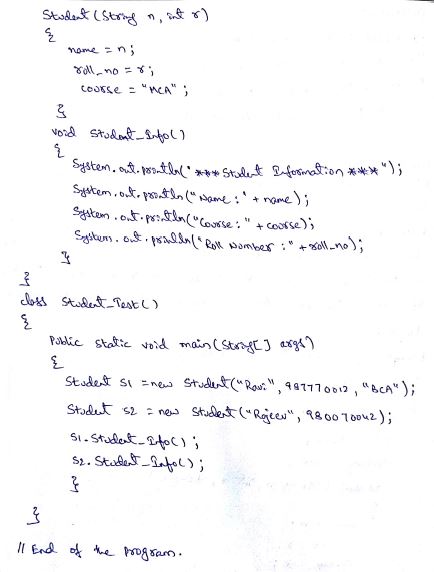 Student (String n, int r)
{
name = n;
roll_no = r;
course = "MCA";
}
void Student_Info()
{
System.out.println("*** Student Information ***");
System.out.println("Name : " + name);
System.out.println("Course : " + course);
System.out.println("Roll Number : " + roll_no);
}
}
class Student_Test()
{
Public static void main(String[] args)
{
Student S1 = new Student("Ravi", 987770012, "BCA");
Student S2 = new Student("Rajeev", 980070042);
S1.Student_Info();
S2.Student_Info();
}
}
// End of the Program.